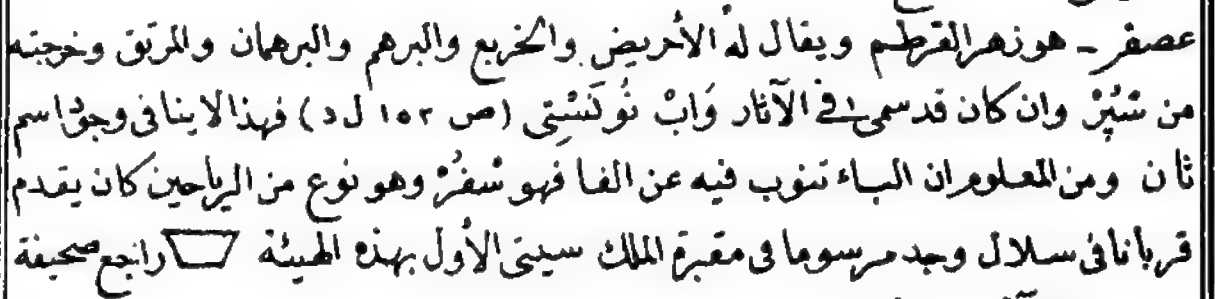 عصفر ـ هو زهر القرطم ويقال له الأحريض والخريع والبهرم والبهرمان والمريق وخرجته
من شپر وان كان قد سمى فى الآثار وَابْ نُوئَسْتِى (ص ١٥٢ ل د) فهذا لا ينافى وجود اسم
ثان ومن المعلوم ان الباء تنوب فيه عن الفا فهو شفر وهو نوع من الرياحين كان يقدم
قربانا فى سلال وجد مرسوما فى مقبرة الملك سيتى الأول بهذه الهيئة راجع صحيفة